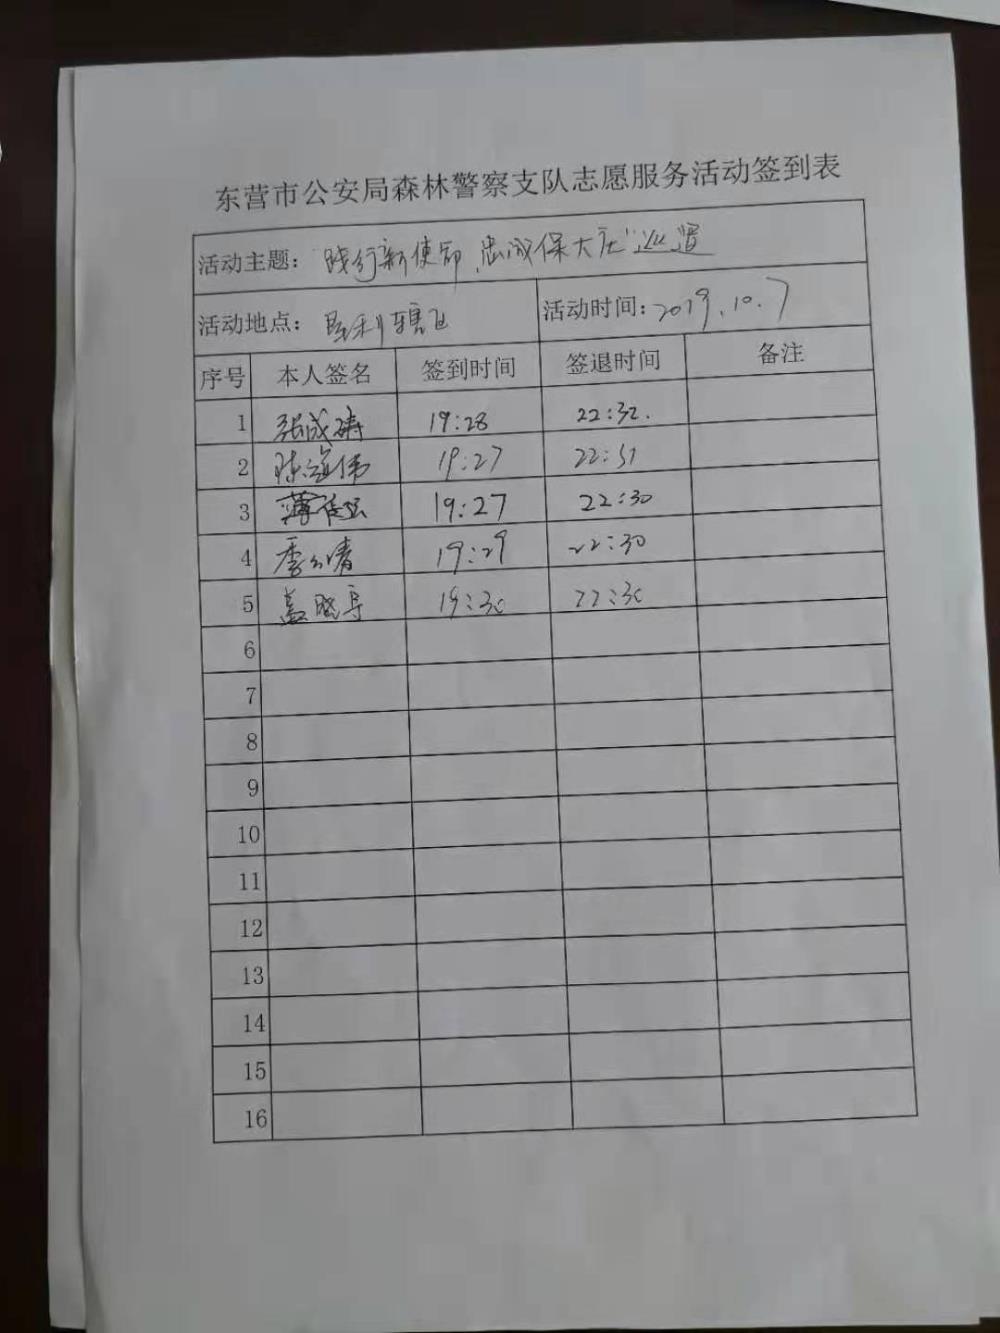 东营市公安局森林警察支队志愿服务活动签到表
活动主题：“践行新使命、忠诚保大庆”巡逻
活动地点：胜利辖区 活动时间：2019.10.7
序号 本人签名 签到时间 签退时间 备注
1 张成涛 19:28 22:32.
2 陈海伟 19:27 22:31
3 薄 19:27 22:30
4 季 19:29 22:30
5 盖晓 19:30 22:30
6
7
8
9
10
11
12
13
14
15
16